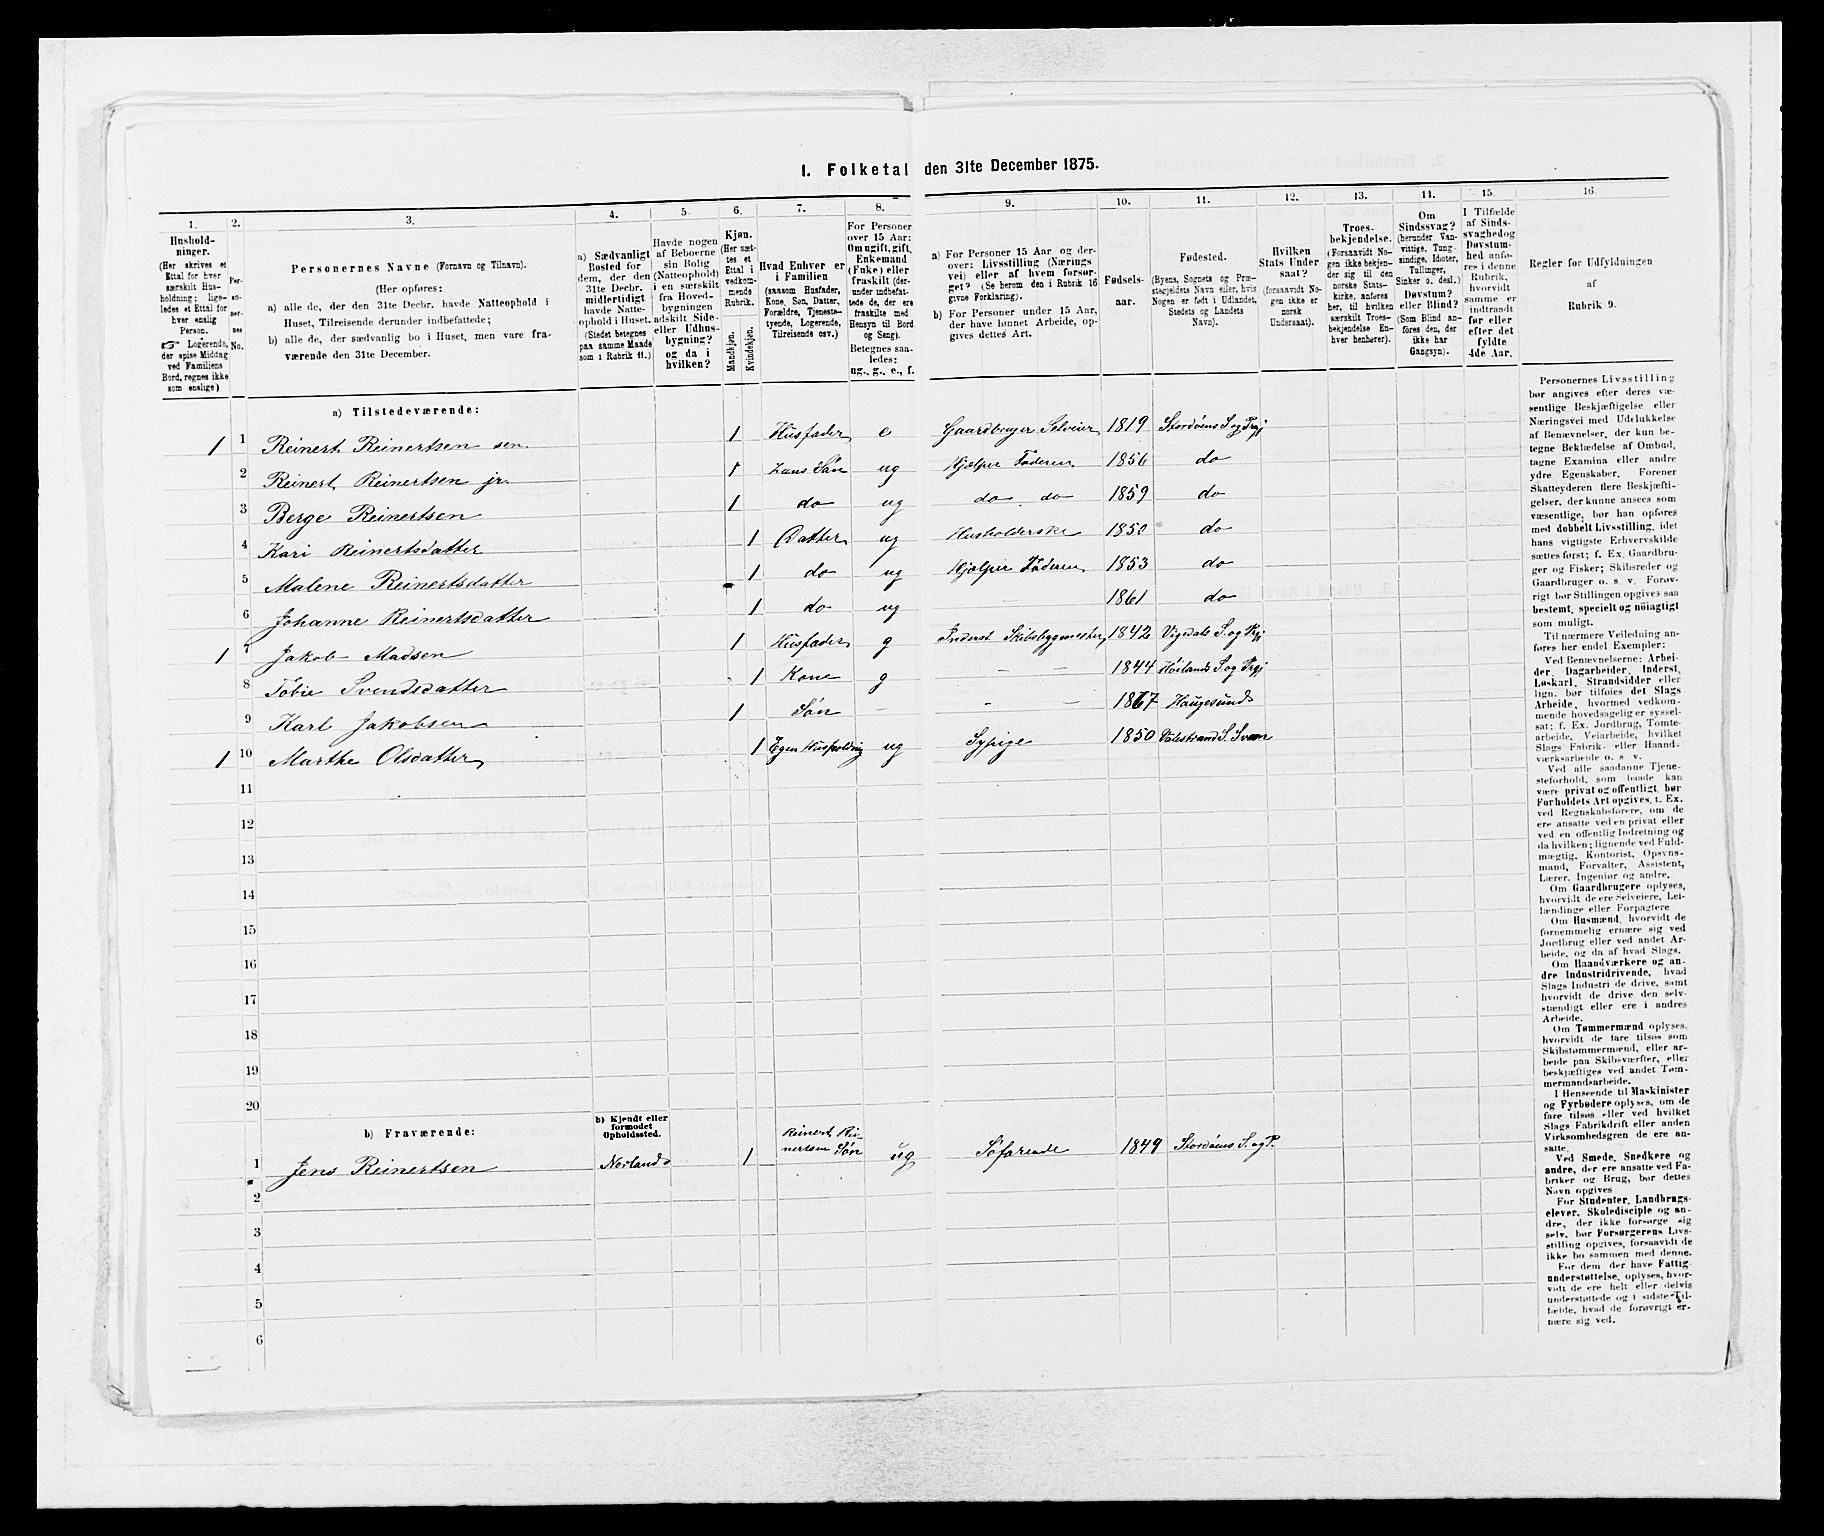 1. Folketal den 31te December 1875.
1. 2. 3. 4. 5. 6. 7. 8. 9. 10. 11. 12. 13. 14. 15. 16.
Hushold-
ninger.
(Her skrives et
Ettal for hver
særskilt Hus-
holdning; lige-
ledes et Ettal for
hver enslig
Person.
☞ Logerende,
der spise Middag
ved Familiens
Bord, regnes ikke
som enslige)
Per-
so-
ner-
nes
No.
Personernes Navne (Fornavn og Tilnavn).
(Her opføres:
a) alle de, der den 31te Decbr. havde Natteophold i
Huset, Tilreisende derunder indbefattede;
b) alle de, der sædvanlig bo i Huset, men vare fra-
værende den 31te December.
a) Sædvanligt
Bosted for
dem, der den
31te Decbr.
midlertidigt
havde Natte-
ophold i Huset.
(Stedet betegnes
paa samme Maade
som i Rubrik 11.)
Havde nogen
af Beboerne
sin Bolig
(Natteophold)
i en særskilt
fra Hoved-
bygningen
adskilt Side-
eller Udhus-
bygning?
og da i
hvilken?
Kjøn.
(Her sæt-
tes et
Ettal i
vedkom-
mende
Rubrik.
Mandkjøn.
Kvindekjøn.
Hvad Enhver er
i Familien
(saasom Husfader,
Kone, Søn, Datter,
Forældre, Tjeneste-
tyende, Logerende,
Tilreisende osv.)
For Personer
over 15 Aar:
Om ugift, gift,
Enkemand
(Enke) eller
fraskilt (her
under indbefat-
tede de, der ere
fraskilte med
Hensyn til Bord
og Seng).
Betegnes saa-
ledes:
ug., g., e., f.
a) For Personer 15 Aar og der-
over: Livsstilling (Nærings-
vei) eller af hvem forsør-
get? (Se herom den i Rubrik 16
givne Forklaring).
b) For Personer under 15 Aar,
der have lønnet Arbeide, op-
gives dettes Art.
Fødsels-
aar.
Fødested.
(Byens, Sognets og Præ-
stegjeldets Navn eller, hvis
Nogen er født i Udlandet,
Stedets og Landets
Navn).
Hvilken
Stats Under
saat?
(forsaavidt No-
gen ikke er
norsk
Undersaat).
Troes-
bekjendelse.
(Forsaavidt No-
gen ikke bekjen-
der sig til den
norske Stats-
kirke, anføres
her, til hvilken
særskilt Troes-
bekjendelse En-
hver henhører).
Om
Sindssvag?
(herunder Van-
vittige, Tung-
sindige, Idioter,
Tullinger,
Sinker o. desl.).
Døvstum?
eller Blind?
(Som Blind an-
føres den, der
ikke har
Gangsyn).
I Tilfælde
af Sinds-
svaghed og
Døvstum-
hed anfø-
res i denne
Rubrik,
hvorvidt
samme er
indtraadt
før eller
efter det
fyldte
4de Aar.
Regler for Udfyldningen
af
Rubrik 9.
a) Tilstedeværende:
1 1 Reinert Reinertsen sen 1 Husfader e Gaardbruger Selveier 1819 Stordøens S og Prgj
2 Reinert Reinertsen jr. 1 hans Søn ug Hjælper Faderen 1856 do
3 Berge Reinertsen 1 do ug do do 1859 do
4 Kari Reinertsdatter 1 Datter ug Husholderske 1850 do
5 Malene Reinertsdatter 1 do ug Hjælper Faderen 1853 do
6 Johanne Reinertsdatter 1 do ug — 1861 do
1 7 Jakob Madsen 1 Husfader g Inderst Skibsbygmester 1842 Vigedals S. og Prgj
8 Tobie Svendsdatter 1 Kone g — — 1844 Høilands S og Prgj
9 Karl Jakobsen 1 Søn — — — 1867 Haugesund
1 10 Marthe Olsdatter 1 Egen Husholdning ug Sypige 1850 Valestrand S. Sveen
11
12
13
14
15
16
17
18
19
20
b) Fraværende:
b) Kjendt eller
formodet
Opholdssted.
1 Jens Reinertsen Norland 1 Reinert Rei-
nertsen Søn ug Søfarende 1849 Stordøens S. og P.
2
3
4
5
6
Personernes Livsstilling
bør angives efter deres væ-
sentlige Beskjæftigelse eller
Næringsvei med Udelukkelse
af Benævnelser, der kun be-
tegne Beklædelse af Ombud,
tagne Examina eller andre
ydre Egenskaber. Forener
Skatteyderen flere Beskjæfti-
gelser, der kunne ansees som
væsentlige, bør han opføres
med dobbelt Livsstilling, idet
hans vigtigste Erhvervskilde
sættes først; f. Ex. Gaardbru-
ger og Fisker; Skibsreder og
Gaardbruger o. s. v. Forøv-
rigt bør Stillingen opgives saa
bestemt, specielt og nøiagtigt
som muligt.
Til nærmere Veiledning an-
føres her endel Exempler:
Ved Benævnelserne: Arbei-
der, Dagarbeider, Inderst,
Løskarl, Strandsidder eller
lign. bør tilføies det Slags
Arbeide, hvormed vedkom-
mende hovedsagelig er syssel-
sat; f. Ex. Jordbrug, Tomte-
arbeide, Veiarbeide, hvilket
Slags Fabrik- eller Haand-
værksarbeide o. s v.
Ved alle saadanne Tjene-
steforhold, som baade kan
være privat og offentligt, bør
Forholdets Art opgives, t. Ex.
ved Regnskabsførere, om de
ere ansatte ved en privat eller
ved en offentlig Indretning og
da hvilken; lignende ved Fuld-
mægtig, Kontorist, Opsyns-
mand, Forvalter, Assistent,
Lærer, Ingeniør og andre.
Om Gaardbrugere oplyses,
hvorvidt de ere Selveiere, Lei-
lændinge eller Forpagtere
Om Husmænd, hvorvidt de
fornemmelig ernære sig ved
Jordbrug eller ved andet Ar-
beide, og da af hvad Slags.
Om Haandværkere og an-
dre Industridrivende, hvad
Slags Industri de drive, samt
hvorvidt de drive den selv-
stændigt eller ere i andres
Arbeide.
Om Tømmermænd oplyses,
hvorvidt de fare tilsøs som
Skibstømmermænd, eller ar-
beide paa Skibsværfter, eller
beskjæftiges ved andet Tøm-
mermandsarbeide.
I Henseende til Maskinister
og Fyrbødere oplyses, om de
fare tilsøs eller ved hvilket
Slags Fabrikdrift eller anden
Virksomhedsgren de ere an-
satte.
Ved Smede, Snedkere og
andre, der ere ansatte ved Fa-
briker og Brug, bør dettes
Navn opgives
For Studenter, Landbrugs-
elever, Skoledisciple og an-
dre, der ikke forsørge sig
selv, bør Forsørgerens Livs-
stilling opgives, forsaavidt de
ikke bo sammen med denne.
For dem, der have Fattig-
understøttelse, oplyses, hvor-
vidt de ere helt eller delvis
understøttede og i sidste Til-
fælde, hvad de forøvrigt er-
nære sig ved.